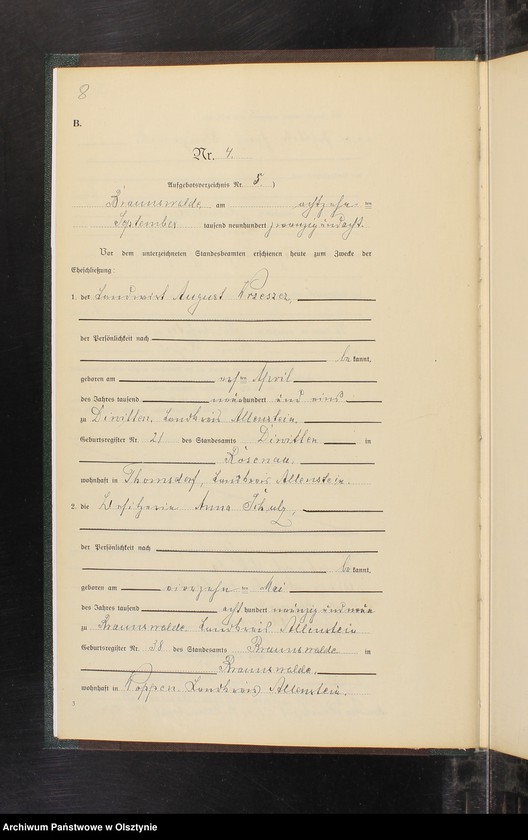 8
B.
Nr. 4.
Aufgebotsverzeichnis Nr. 5.)
Braunswalde, am achtzehn ten
September tausend neunhundert zwanzig und acht.
Vor dem unterzeichneten Standesbeamten erschienen heute zum Zwecke der
Eheschließung:
1. der Landwirt August
der Persönlichkeit nach
be kannt,
geboren am ten April
des Jahres tausend neunhundert und eins
zu Diwitten, Landkreis Allenstein,
Geburtsregister Nr. 21 des Standesamts Diwitten in
Rosenau.
wohnhaft in Thomsdorf, Landkreis Allenstein.
2. die Besitzerin Anna Schulz,
der Persönlichkeit nach
be kannt,
geboren am vierzehn ten Mai
des Jahres tausend acht hundert neunzig und
zu Braunswalde, Landkreis Allenstein
Geburtsregister Nr. 38 des Standesamts Braunswalde in
Braunswalde.
wohnhaft in Landkreis Allenstein.
Archiwum Państwowe w Olsztynie